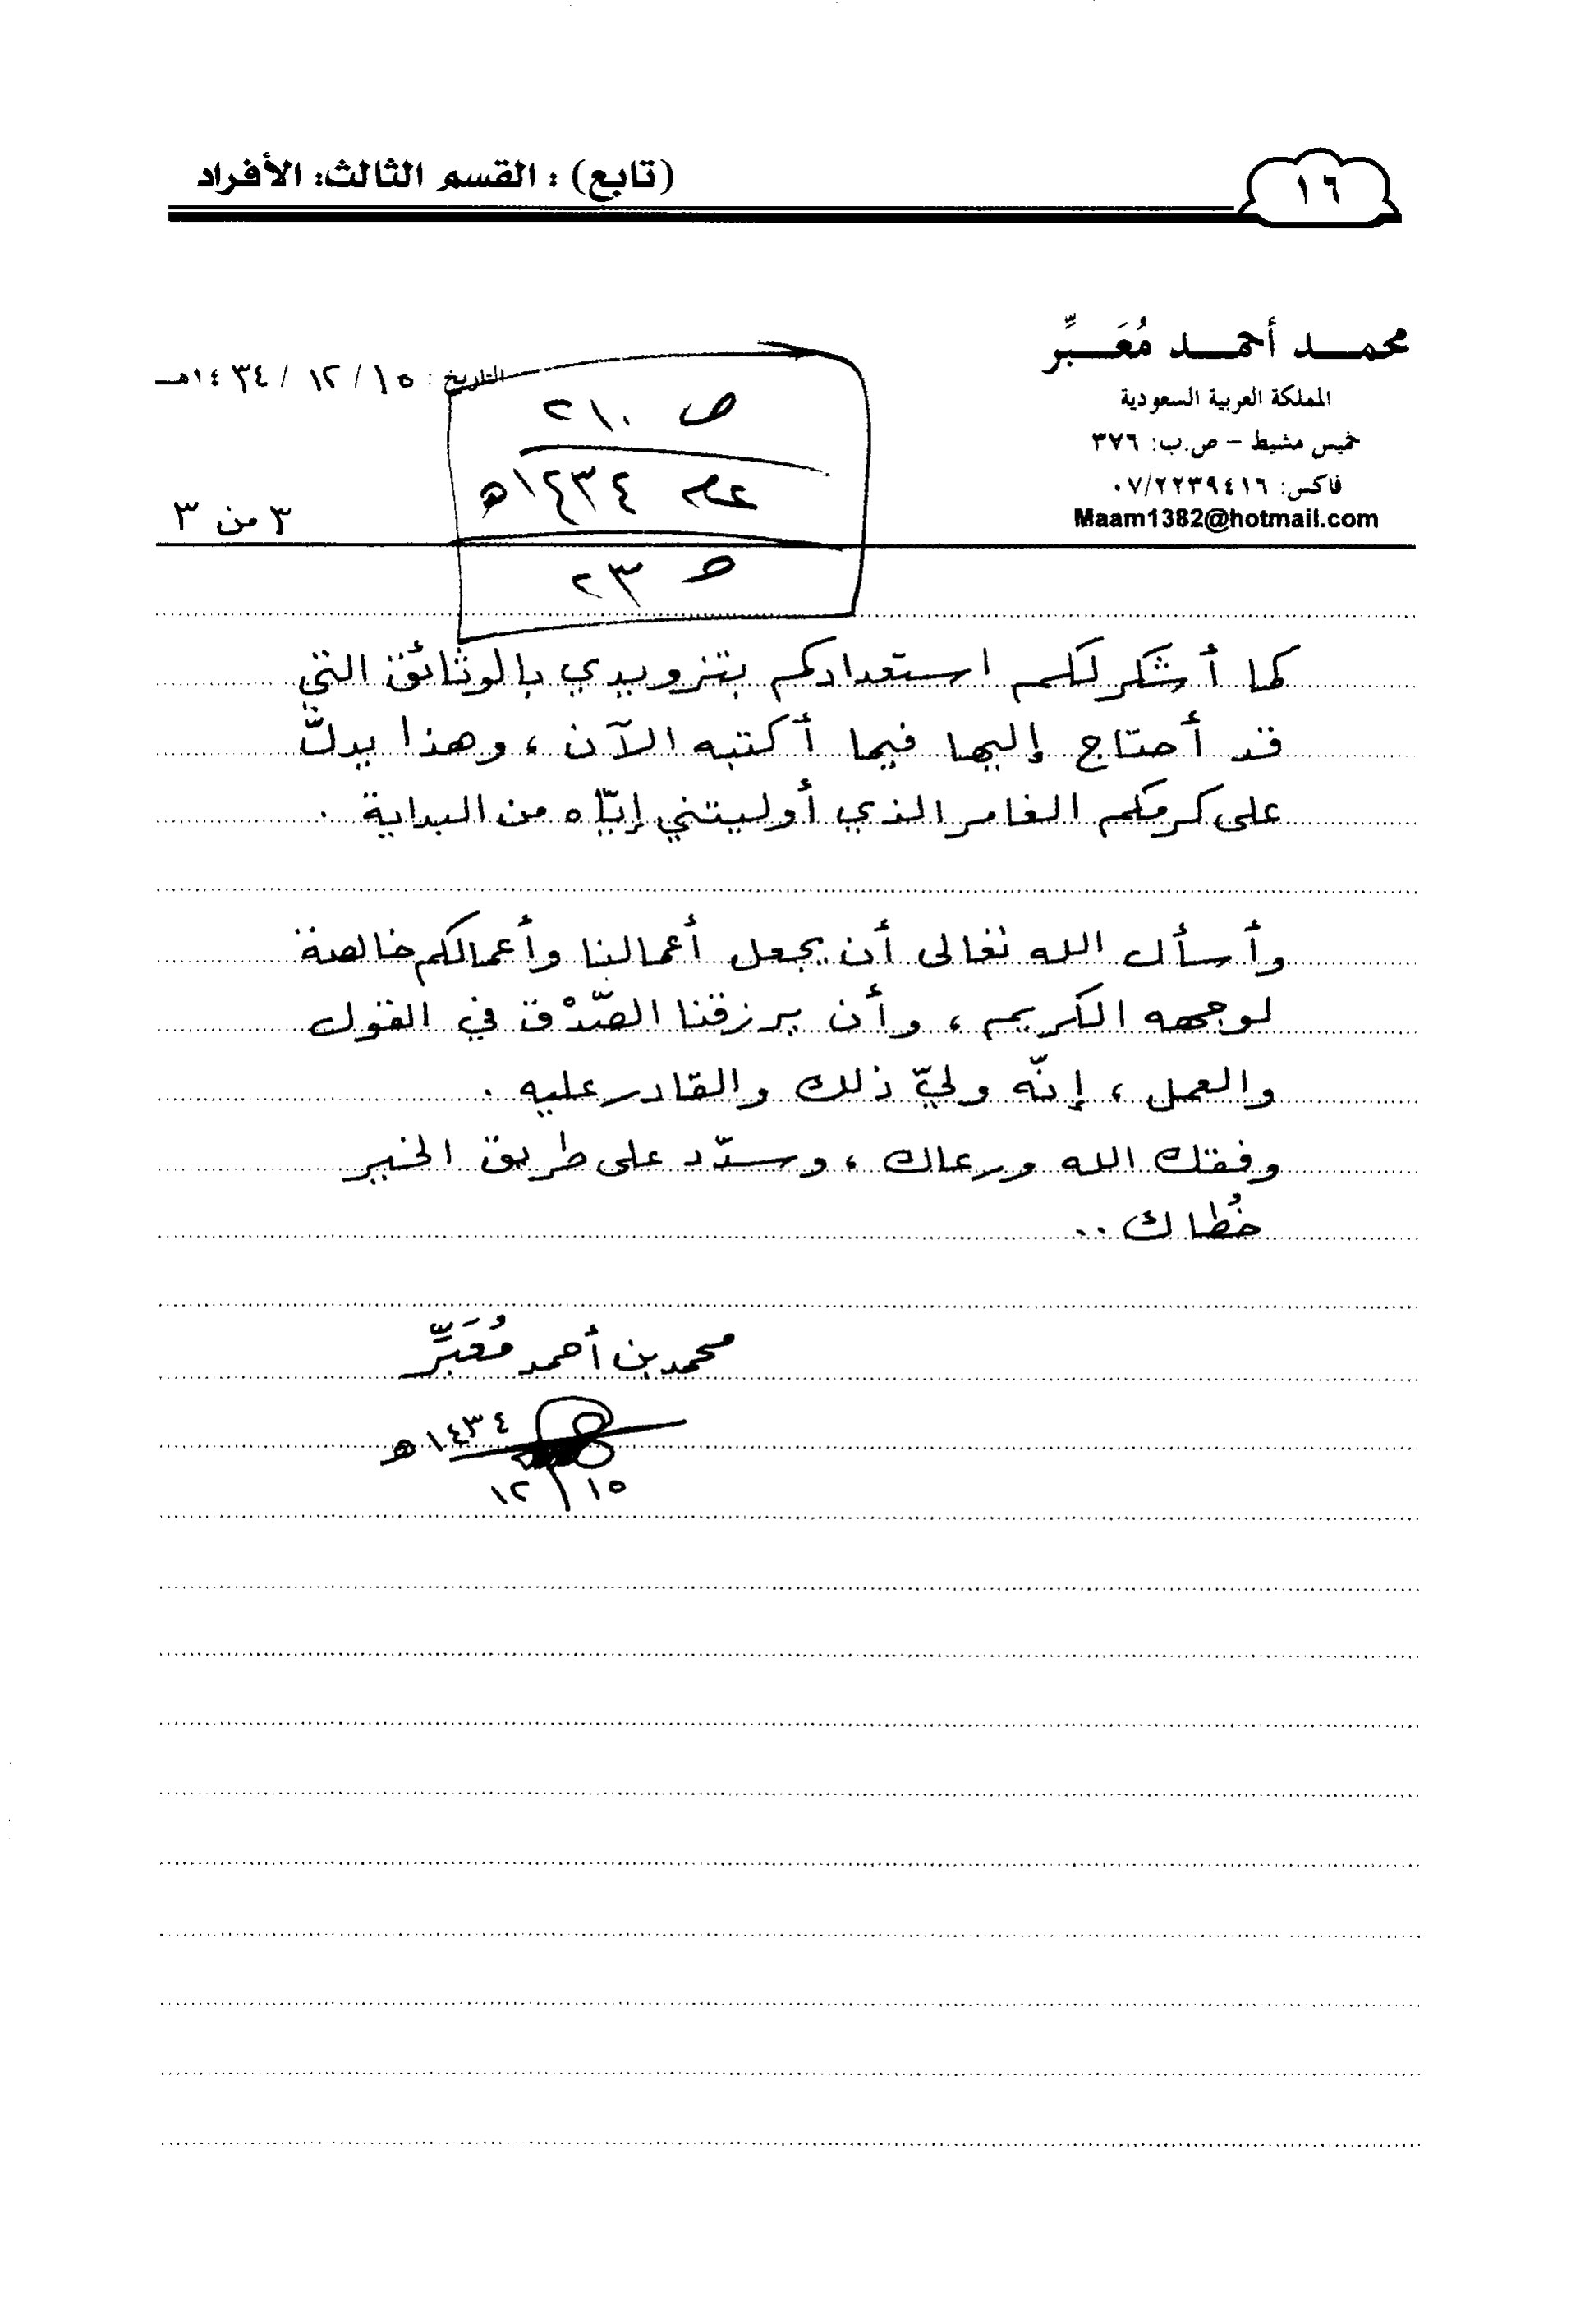 ١٦
(تابع) : القسم الثالث: الأفراد
محمد أحمد مُعَبِّر
المملكة العربية السعودية
خميس مشيط - ص.ب: ٣٧٦
فاكس: ٠٧/٢٢٣٩٤١٦
Maam1382@hotmail.com
التاريخ : ١٥ / ١٢ / ١٤٣٤هـ
٣ من ٣
ص ٢١٠
١٤٣٤هـ
٢٣
كما أشكر لكم استعدادكم بتزويدي بالوثائق التي
قد أحتاج إليها فيما أكتبه الآن ، وهذا يدلّ
على كرمكم الغامر الذي أوليتني إيّاه من البداية .
وأسأل الله تعالى أن يجعل أعمالنا وأعمالكم خالصة
لوجهه الكريم ، وأن يرزقنا الصّدْق في القول
والعمل ، إنّه وليّ ذلك والقادر عليه .
وفقك الله ورعاك ، وسدّد على طريق الخير
خُطاك ..
محمد بن أحمد مُعَبِّر
١٤٣٤هـ
١٥ / ١٢